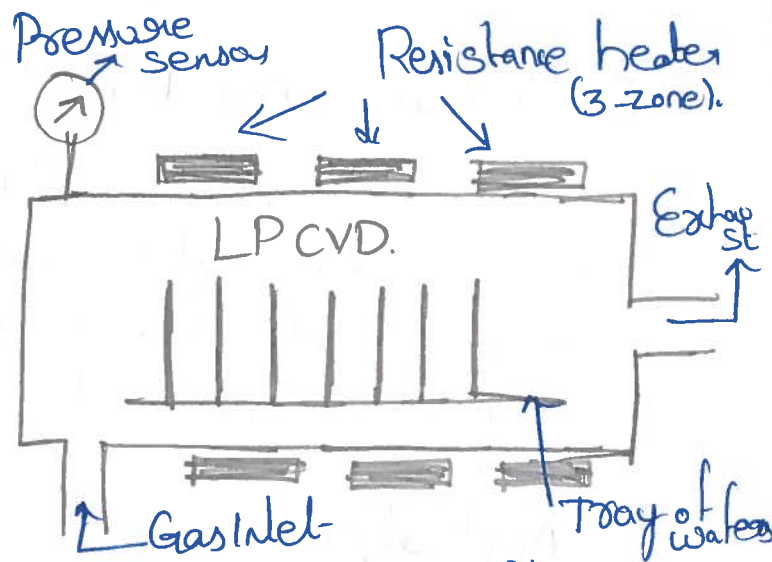 Pressure
sensor
Resistance heater
(3-zone).
LPCVD.
Exhau
st
Gas Inlet
Tray of
wafers